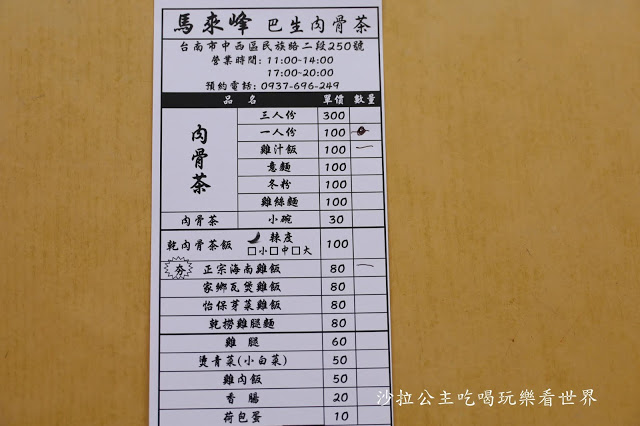 馬來峰 巴生肉骨茶
台南市中西區民族路二段250號
營業時間: 11:00-14:00
17:00-20:00
預約電話: 0937-696-249
品 名 單價 數量
肉骨茶
三人份 300
一人份 100
雞汁飯 100 一
意麵 100
冬粉 100
雞絲麵 100
肉骨茶 小碗 30
乾肉骨茶飯 辣度 □小□中□大 100
夯 正宗海南雞飯 80 一
家鄉瓦煲雞飯 80
怡保芽菜雞飯 80
乾撈雞腿麵 80
雞腿 60
燙青菜(小白菜) 50
雞肉飯 50
香腸 20
荷包蛋 10
沙拉公主吃喝玩樂看世界